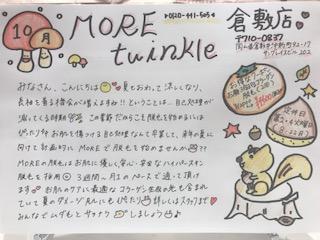 10月
MORE
twinkle
倉敷店
〒710-0837
みなさん、こんにちは
夏もおわって涼しくなり、
長袖を着る機会が増えますね!!ということは…自己処理が
減ってくる時期
この季節だからこそ脱毛を始めるには
ぴったり
お肌を傷つける自己処理なんて卒業して、来年の夏に
向けて計画的にMOREで脱毛を始めませんか??
MOREの脱毛はお肌に優しく、安心・安全なハイパースキン
脱毛を採用
3週間〜月1のペースで通って頂け
ます
お肌のケアに最適なコラーゲン生成の光も含まれ
ていて夏のダメージ肌にもぴったり
詳しくはスタッフまで
みんなでムダ毛とサヨナラ
しましょう♪
定休日
第2・4火曜日